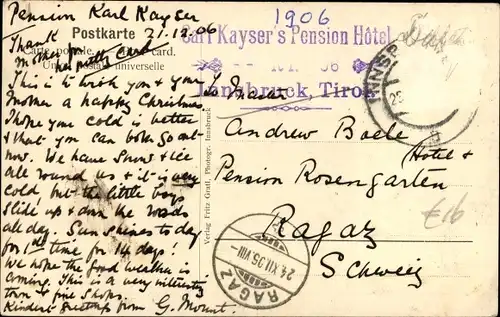 Pension Karl Kayser
21.12.06
1906
Postkarte
Carte postale.
Union postale universelle
Carl Kayser's Pension Hôtel
Innsbruck, Tirol
Thank
Mother for
her pretty card
This is to wish you & your
Mother a happy Christmas
I hope your cold is better
& that you can both go out
now. We have snow & ice
all round us & it is very
cold but the little boys
slide up & down the roads
all day. Sun shines to day
for 1st time for 14 days!
We hope the good weather is
coming. This is a very interesting
town & fine shops.
Kindest greetings from G. Mount.
Verlag Fritz Gratl, Photogr. Innsbruck
INNSB
25
Andrew Boele
Hotel &
Pension Rosengarten
Ragaz
Schweiz
€16
RAGAZ
24.XII.06.VIII-